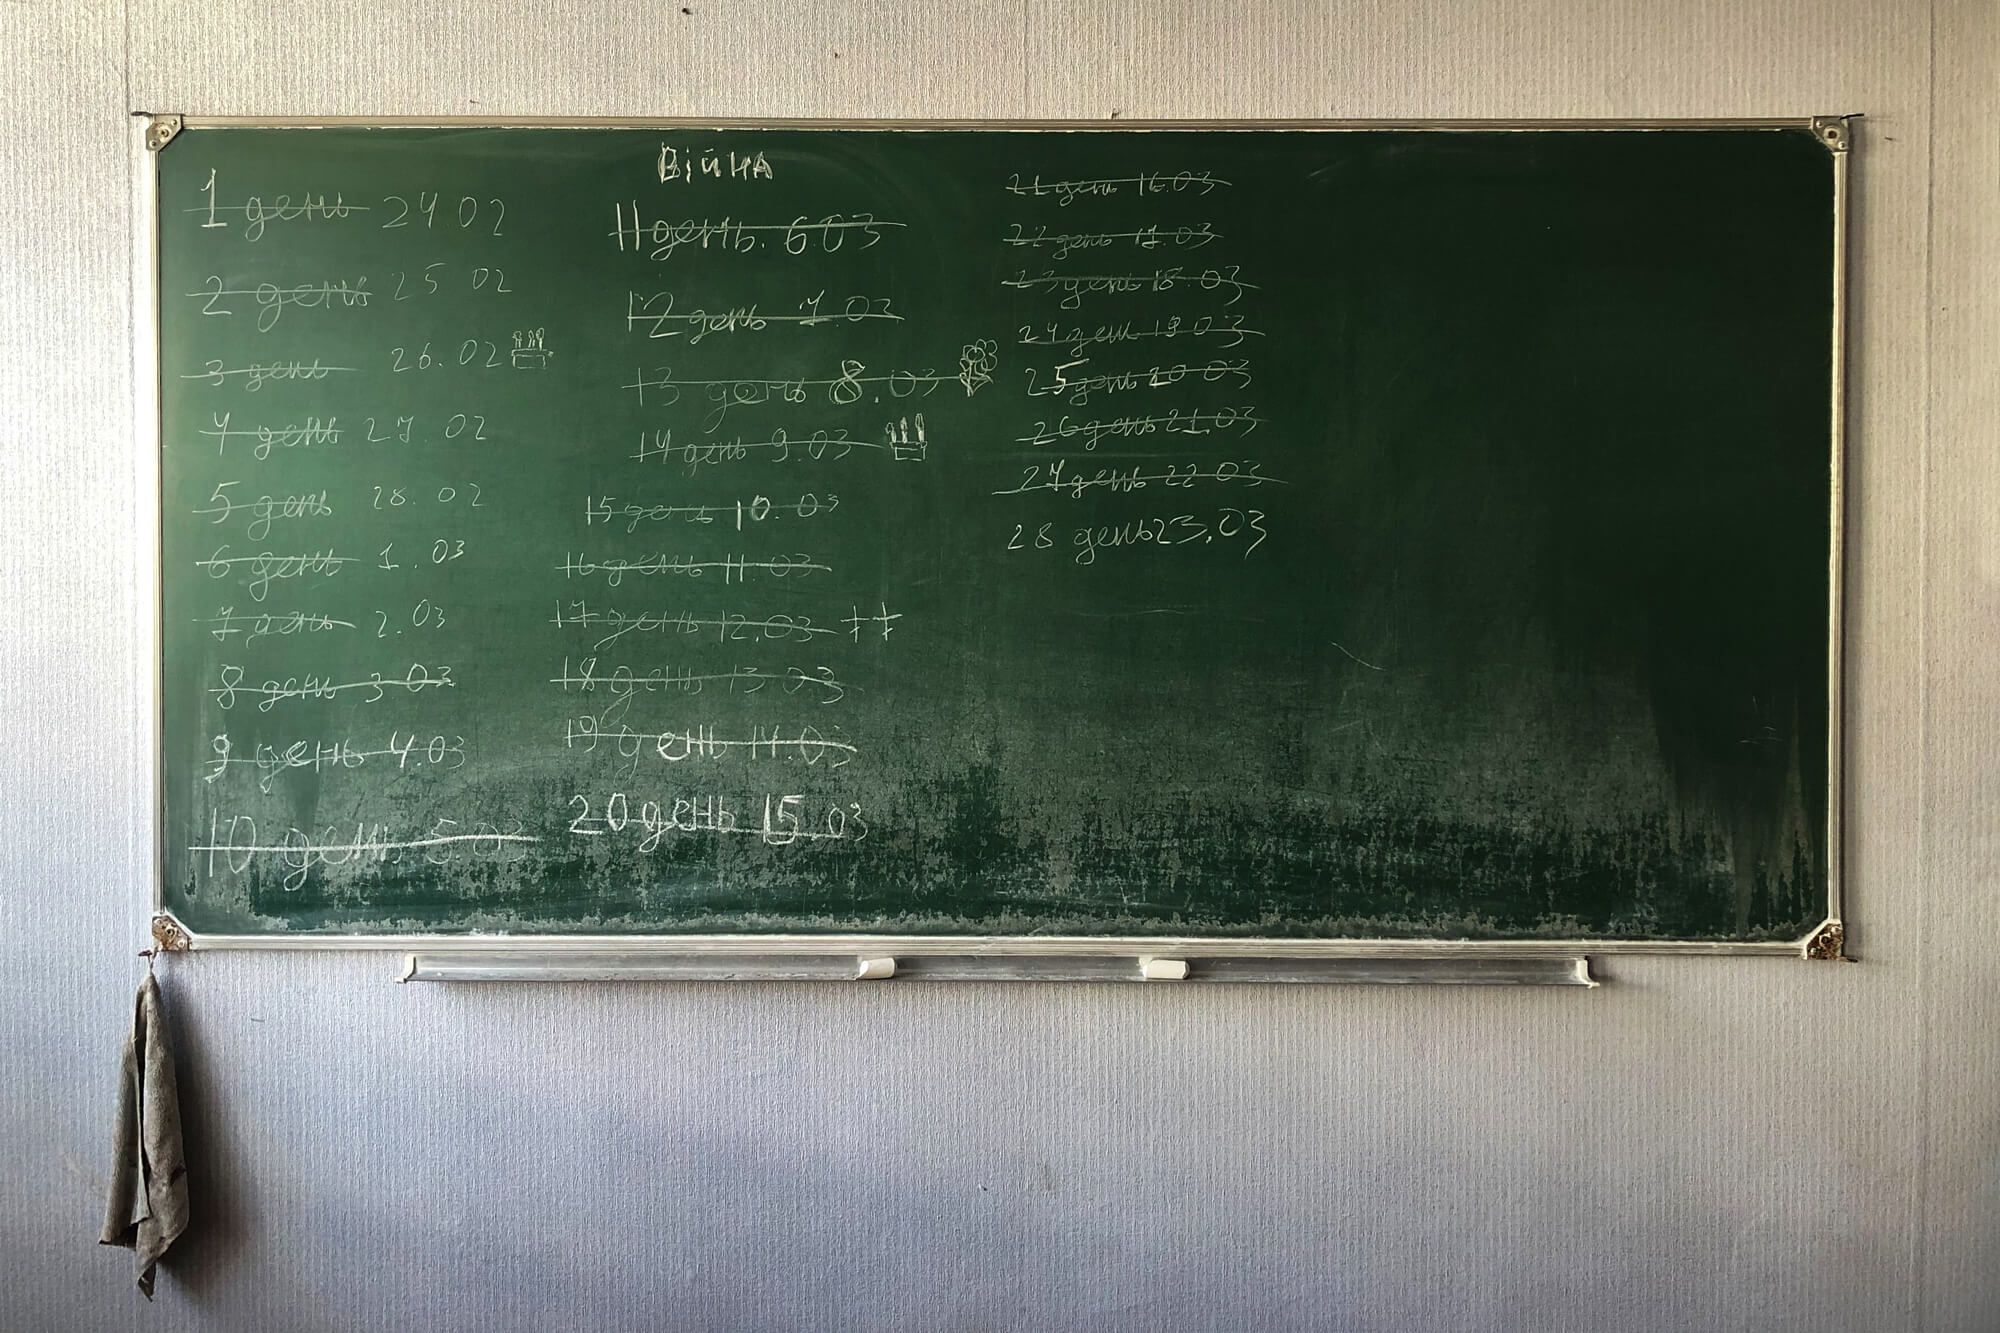 Війна
1 день 24.02
2 день 25 02
3 день 26.02
4 день 27. 02
5 день 28. 02
6 день 1. 03
7 день 2. 03
8 день 3 03
9 день 4.03
10 день 5.03
11 день. 6 03
12 день 7. 03
13 день 8. 03
14 день 9. 03
15 день 10. 03
16 день 11. 03
17 день 12.03 ††
18 день 13 03
19 день 14.03
20 день 15.03
21 день 16.03
22 день 17.03
23 день 18. 03
24 день 19 03
25 день 20 03
26 день 21.03
27 день 22 03
28 день 23.03